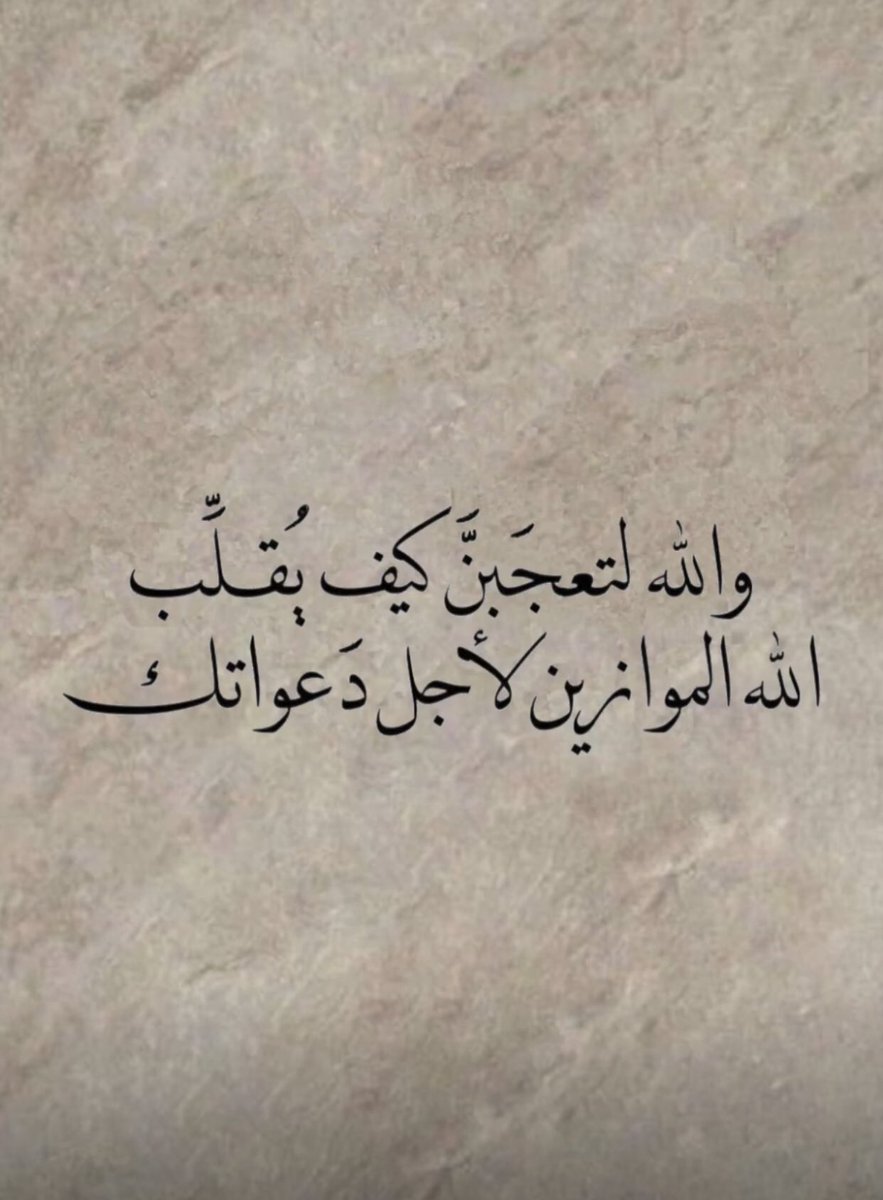 والله لتعجَبنَّ كيف يُقلِّب
الله الموازين لأجل دَعواتك